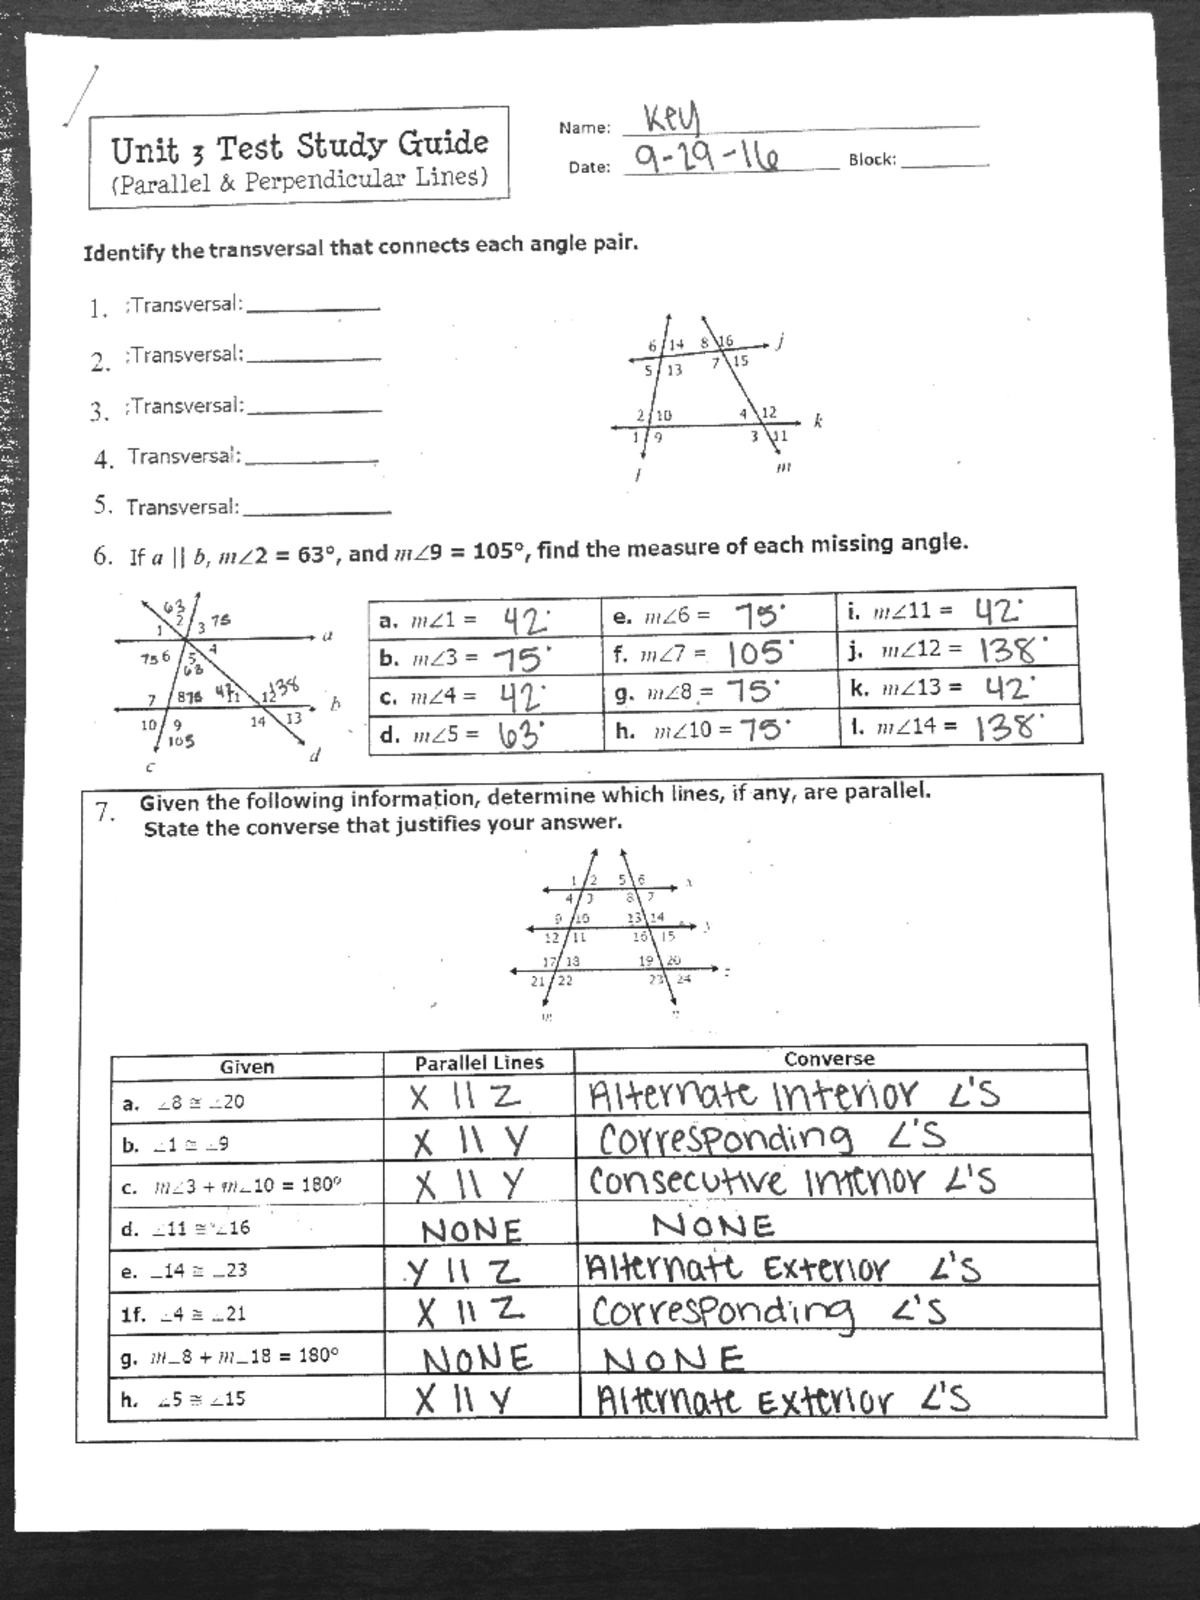 Unit 3 Test Study Guide
(Parallel & Perpendicular Lines)
Name: Key
Date: 9-29-16 Block:
Identify the transversal that connects each angle pair.
1. ;Transversal:
2. :Transversal:
3. :Transversal:
4. Transversal:
5. Transversal:
6 14 8 16 j
5 13 7 15
2 10 4 12 k
1 9 3 11
l m
6. If a || b, m∠2 = 63°, and m∠9 = 105°, find the measure of each missing angle.
63
1 2 3 75 a
75 6 5 4
63
7 8 75 42 11 12 138 b
10 9 14 13
105
c d
a. m∠1 = 42° e. m∠6 = 75° i. m∠11 = 42°
b. m∠3 = 75° f. m∠7 = 105° j. m∠12 = 138°
c. m∠4 = 42° g. m∠8 = 75° k. m∠13 = 42°
d. m∠5 = 63° h. m∠10 = 75° l. m∠14 = 138°
7. Given the following information, determine which lines, if any, are parallel.
State the converse that justifies your answer.
1 2 5 6 x
4 3 8 7
9 10 13 14 y
12 11 16 15
17 18 19 20
21 22 23 24
m
Given Parallel Lines Converse
a. ∠8 ≅ ∠20 X || Z Alternate Interior ∠'S
b. ∠1 ≅ ∠9 X || Y Corresponding ∠'S
c. m∠3 + m∠10 = 180° X || Y Consecutive Interior ∠'S
d. ∠11 ≅ ∠16 NONE NONE
e. ∠14 ≅ ∠23 Y || Z Alternate Exterior ∠'S
1f. ∠4 ≅ ∠21 X || Z Corresponding ∠'S
g. m∠8 + m∠18 = 180° NONE NONE
h. ∠5 ≅ ∠15 X || Y Alternate Exterior ∠'S